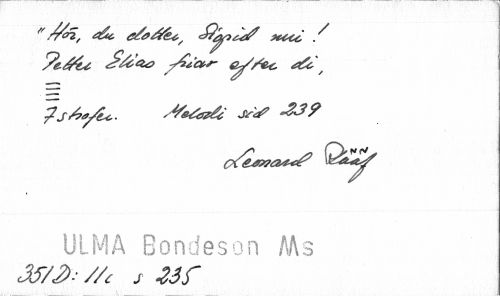 "Hör, du dotter, Sigrid mi!
Petter Elias friar efter di,
7 strofer. Melodi sid 239
Leonard Rääf
ULMA Bondeson Ms
351 D: 11c s 235